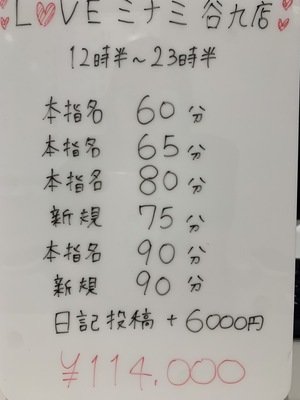 ♡L♡VE ミナミ 谷九店♡
12時半~23時半
本指名 60分
本指名 65分
本指名 80分
新規 75分
本指名 90分
新規 90分
日記投稿 + 6000円
¥114.000